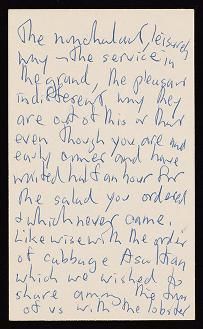 The nonchalant, leisurely
way – the service in
the grand, the pleasant
indifferent, way they
are out of this or that
even though you are and
early comer and have
waited half an hour for
the salad you ordered
& which never came.
Likewise with the order
of cabbage Asultan
which we wished to
share among the
of us with the lobster